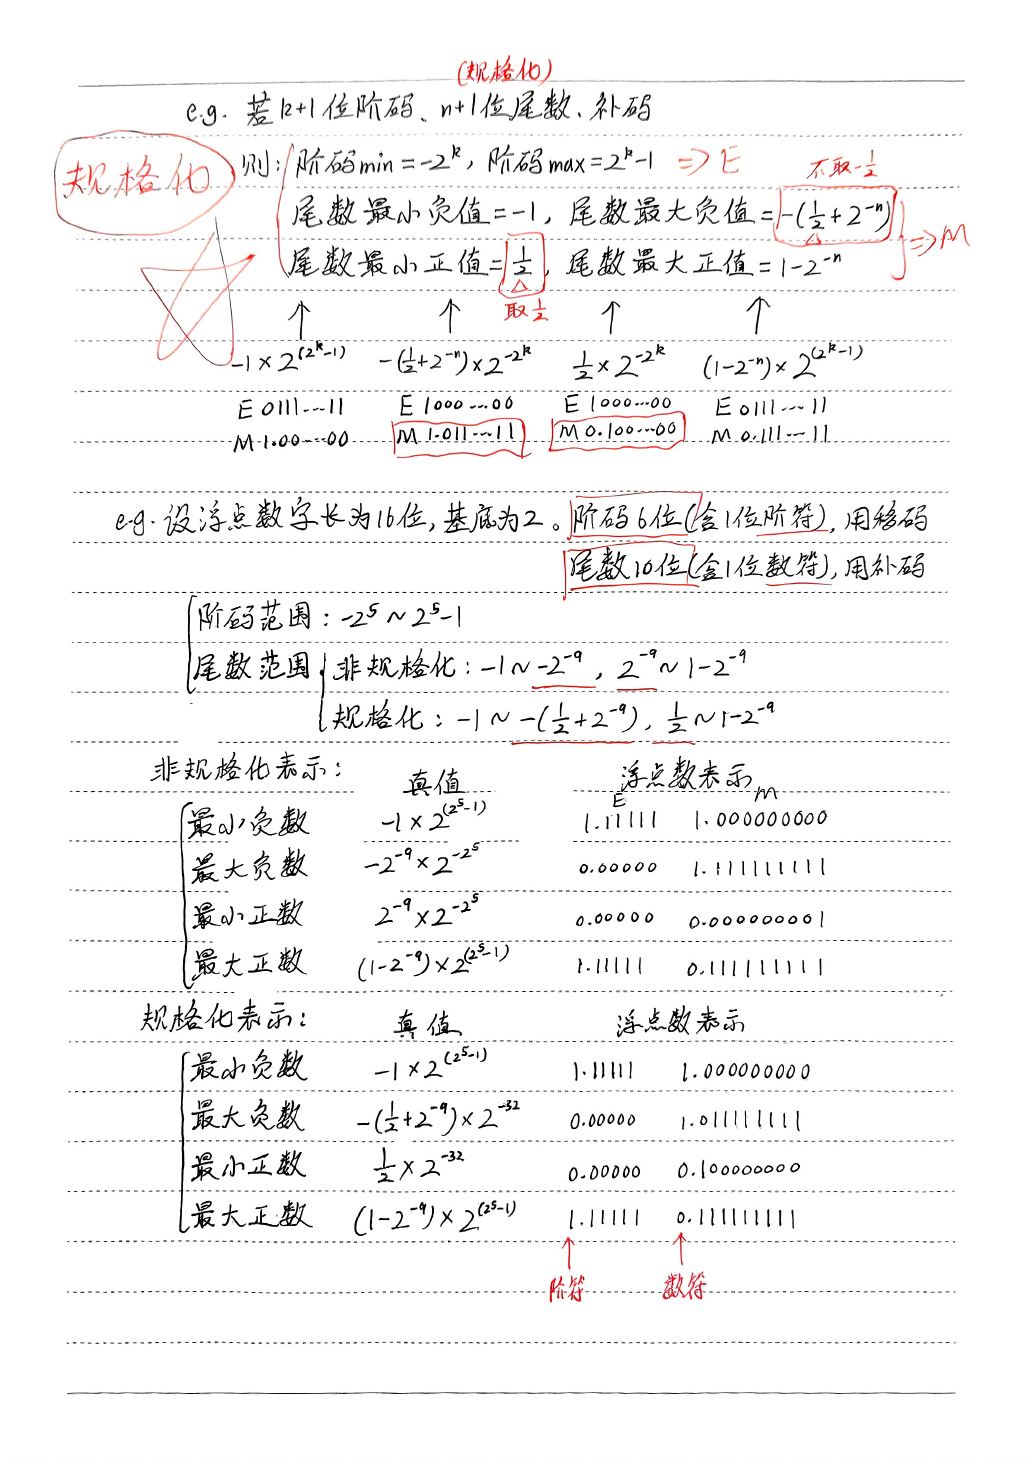 (规格化)
e.g. 若k+1位阶码、n+1位尾数、补码
规格化
则: 阶码min=-2^k, 阶码max=2^k-1 ⇒E
不取-1/2
尾数最小负值=-1, 尾数最大负值=-(1/2+2^-n)
⇒M
尾数最小正值=1/2, 尾数最大正值=1-2^-n
取1/2
↑ ↑ ↑ ↑
-1×2^(2^k-1) -(1/2+2^-n)×2^-2^k 1/2×2^-2^k (1-2^-n)×2^(2^k-1)
E 0111…11 E 1000…00 E 1000…00 E 0111…11
M 1.00…00 M 1.011…11 M 0.100…00 M 0.111…11
e.g. 设浮点数字长为16位, 基底为2。阶码6位(含1位阶符), 用移码
尾数10位(含1位数符), 用补码
阶码范围: -2^5 ~ 2^5-1
尾数范围 非规格化: -1 ~ -2^-9, 2^-9 ~ 1-2^-9
规格化: -1 ~ -(1/2+2^-9), 1/2 ~ 1-2^-9
非规格化表示: 真值 浮点数表示
E M
最小负数 -1×2^(2^5-1) 1.11111 1.000000000
最大负数 -2^-9×2^-2^5 0.00000 1.111111111
最小正数 2^-9×2^-2^5 0.00000 0.000000001
最大正数 (1-2^-9)×2^(2^5-1) 1.11111 0.111111111
规格化表示: 真值 浮点数表示
最小负数 -1×2^(2^5-1) 1.11111 1.000000000
最大负数 -(1/2+2^-9)×2^-32 0.00000 1.011111111
最小正数 1/2×2^-32 0.00000 0.100000000
最大正数 (1-2^-9)×2^(2^5-1) 1.11111 0.111111111
↑ ↑
阶符 数符